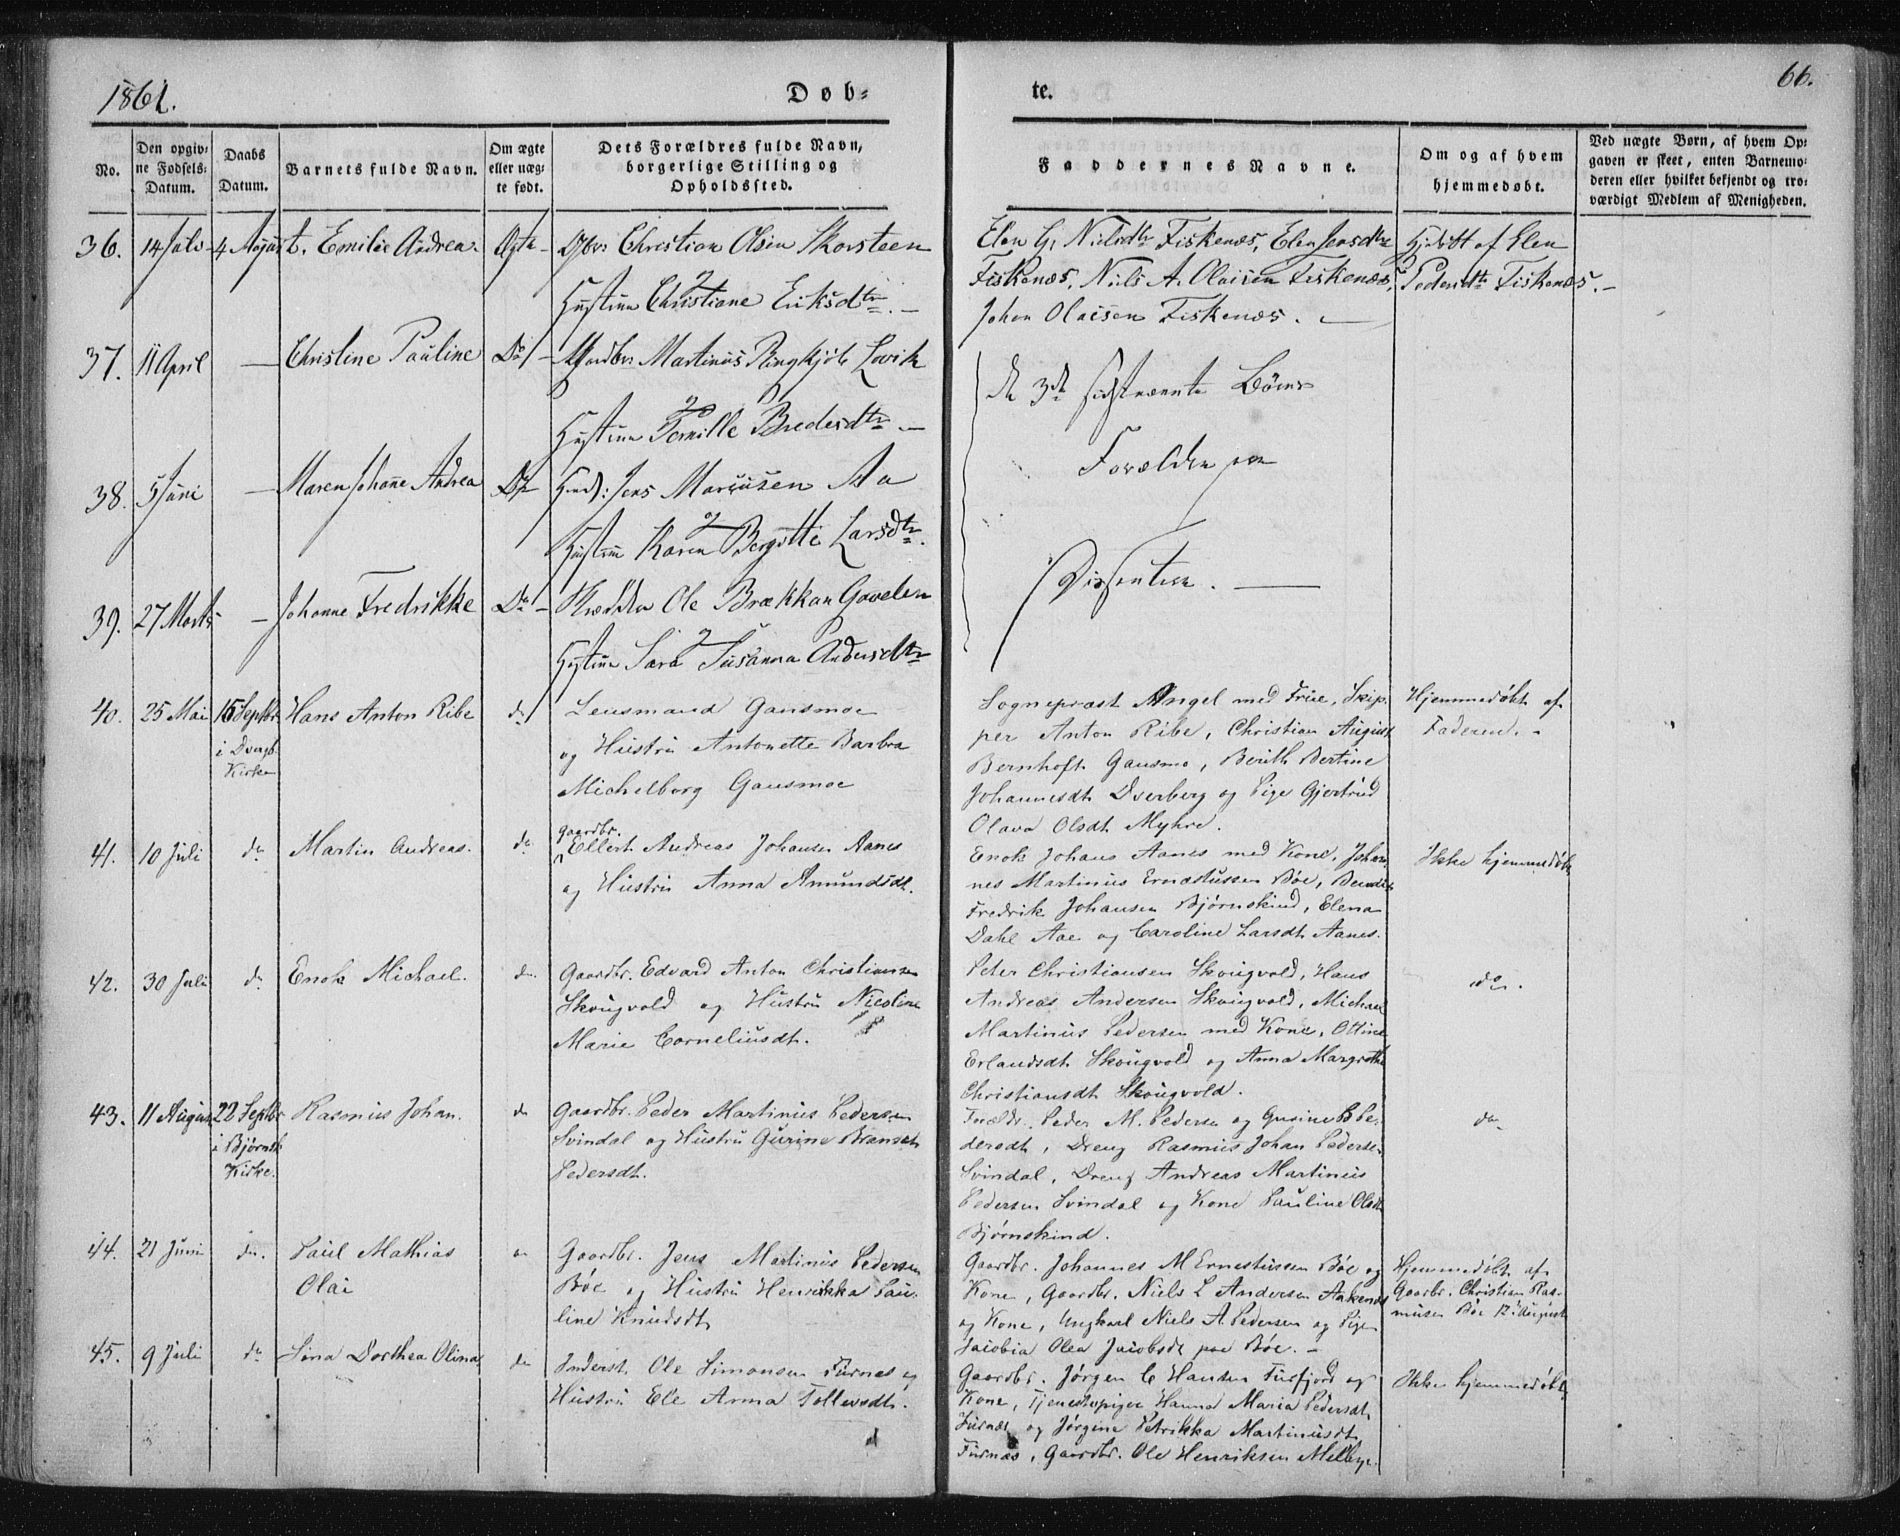 1861.
Døb-
te.
66.
No.
Den opgiv-
ne Fødsels-
Datum.
Daabs
Datum.
Barnets fulde Navn.
Om ægte
eller uæg-
te født.
Dets Forældres fulde Navn,
borgerlige Stilling og
Opholdssted.
Faddernes Navne.
Om og af hvem
hjemmedøbt.
Ved uægte Børn, af hvem Op-
gaven er skeet, enten Barnemo-
deren eller hvilket bekjendt og tro-
værdigt Medlem af Menigheden.
36. 14 Juli 4 August. Emilie Andrea Ægte Christian Olsen Skorsteen
Hustru Christiane Eriksdtr. —
Elen G. Nielsdtr Fiskenæs, Elen Jensdtr
Fiskenæs, Niels A. Olaisen Fiskenæs,
Johan Olaisen Fiskenæs. —
Hjdøbt af Elen
Pedersdtr Fiskenæs. —
37. 11 April — Christine Pauline Do — Martinus Ringkjøb Lovik
Hustrue Pernille Bredesdtr —
de 3de sidstnævnte Børns
Forældre ere
Dissentere. —
38. 5 Juni — Maren Johanne Andrea Do Jens Marcusen Aa
Hustrue Karen Bergitte Larsdtr.
39. 27 Marts — Johanne Fredrikke Do — Ole Brækkan Gavelen
Hustrue Sara Susanna Andersdtr
40. 25 Mai 15 Septbr Hans Anton Ribe do Lensmand Gausmoe
i Dverb.
Kirke
og Hustru Antonette Barbra
Michelborg Gausmoe
Sognepræst Angel med Frue, Skip-
per Anton Ribe, Christian August
Bernhoft Gausmo, Berith Bertine
Johannesdt. Dverberg og Pige Gjertrud
Olava Olsdt. Myhre.
Hjemmedøbt af
Faderen. -
41. 10 Juli do Martin Andreas. do gaardbr.
Ellert Andreas Johansen Aanes
og Hustru Anna Amundsdt.
Enok Johans Aanes med Kone, Johan-
nes Martinus Ernestussen Bøe, Bendik
Fredrik Johansen Bjørnskind, Elena
Dahl Aae og Caroline Larsdt. Aanes.
Ikke hjemmedøbt
42. 30 Juli do Enok Michael. do Gaardbr. Edvard Anton Christiansen
Skougvold og Hustru Nicoline
Marie Corneliusdt.
Peter Christiansen Skougvold, Hans
Andreas Andersen Skougvold, Michael
Martinus Pedersen med Kone, Ottine
Erlandsdt. Skougvold og Anna Margrethe
Christiansdt Skougvold.
do.
43. 11 August 22 Septbr Rasmus Johan. do Gaardbr. Peder Martinus Pedersen
i Bjørnsk.
Kirke.
Svindal og Hustru Gurine
Pedersdt.
Forældr. Peder M. Pedersen og Gurine B Pe-
dersdt, Dreng Rasmus Johan Pedersen
Svindal, Dreng Andreas Martinus
Pedersen Svindal og Kone Pauline Olsdt
Bjørnskind.
do
44. 21 Juni do. Paul Mathias
Olai
Gaardbr. Jens Martinus Pedersen
Bøe og Hustru Henrikka Pau-
line Knudsdt.
Gaardbr. Johannes M Ernestussen Bøe og
Kone, Gaardbr. Niels L Andersen Aakenæs
og Kone, Ungkarl Niels A. Pedersen og Pige
Jacobia Olea Jacobsdt paa Bøe. -
Hjemmedøbt af
Gaarbr. Christian Ras-
musen Bøe 12 August
45. 9 Juli do Sina Dorthea Olina do Inderst Ole Simonsen Furnes og
Hustru Ele Anna Tollevsdt.
Gaardbr. Jørgen C Hansen Fusfjord og
Kone, Tjenestepiger Hanna Maria Pedersdt.
Furnæs og Jørgine Petrikka Martinusdt.
Furnæs, Gaardbr. Ole Henriksen Melbye.
Ikke hjemmedøbt